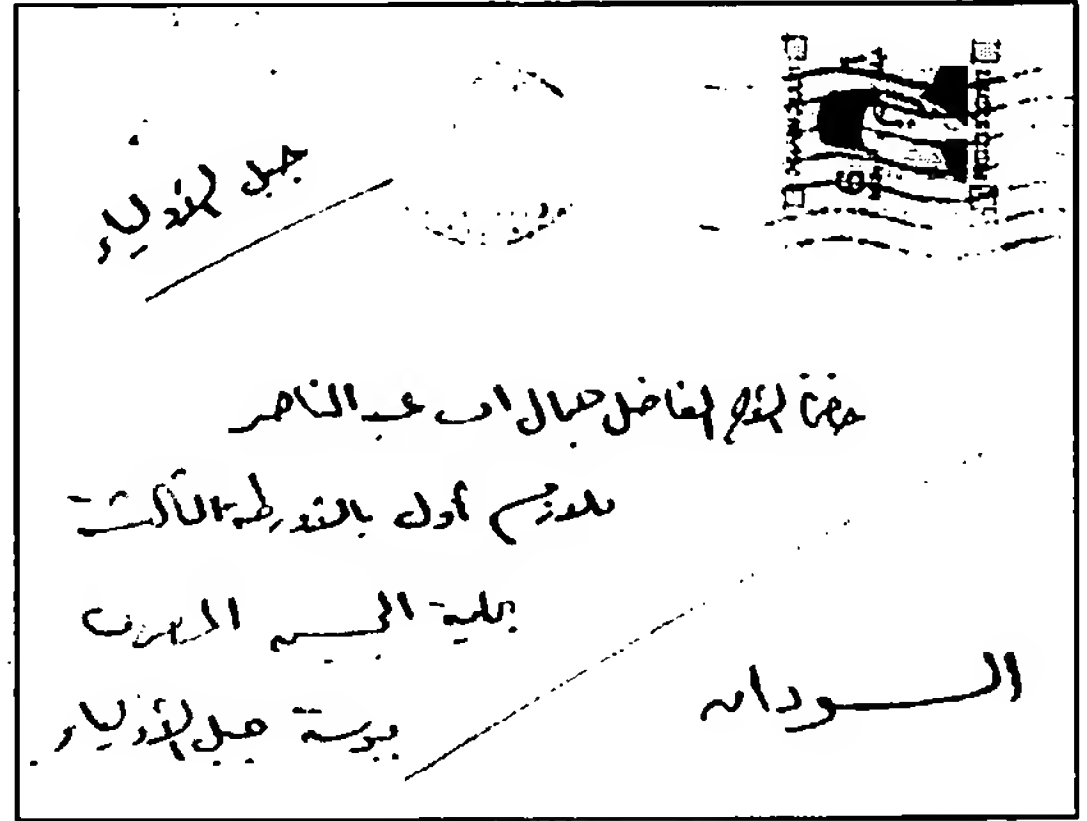 جبل الأولياء
حضرة الأخ الفاضل جمال افـ عبد الناصر
ملازم أول بالأورطة الثالثة
بكلية الجيش المصرى
بوستة جبل الأولياء
السودان